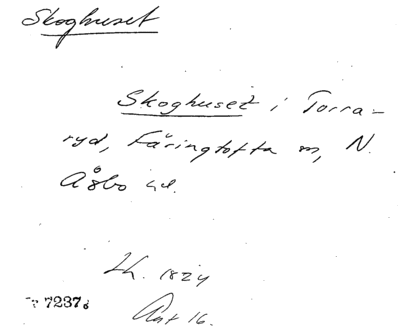 Skoghuset
Skoghuset i Torra-
ryd, Färingtofta sn, N.
Åsbo hd.
Lk. 1824
7237
Ant 16.